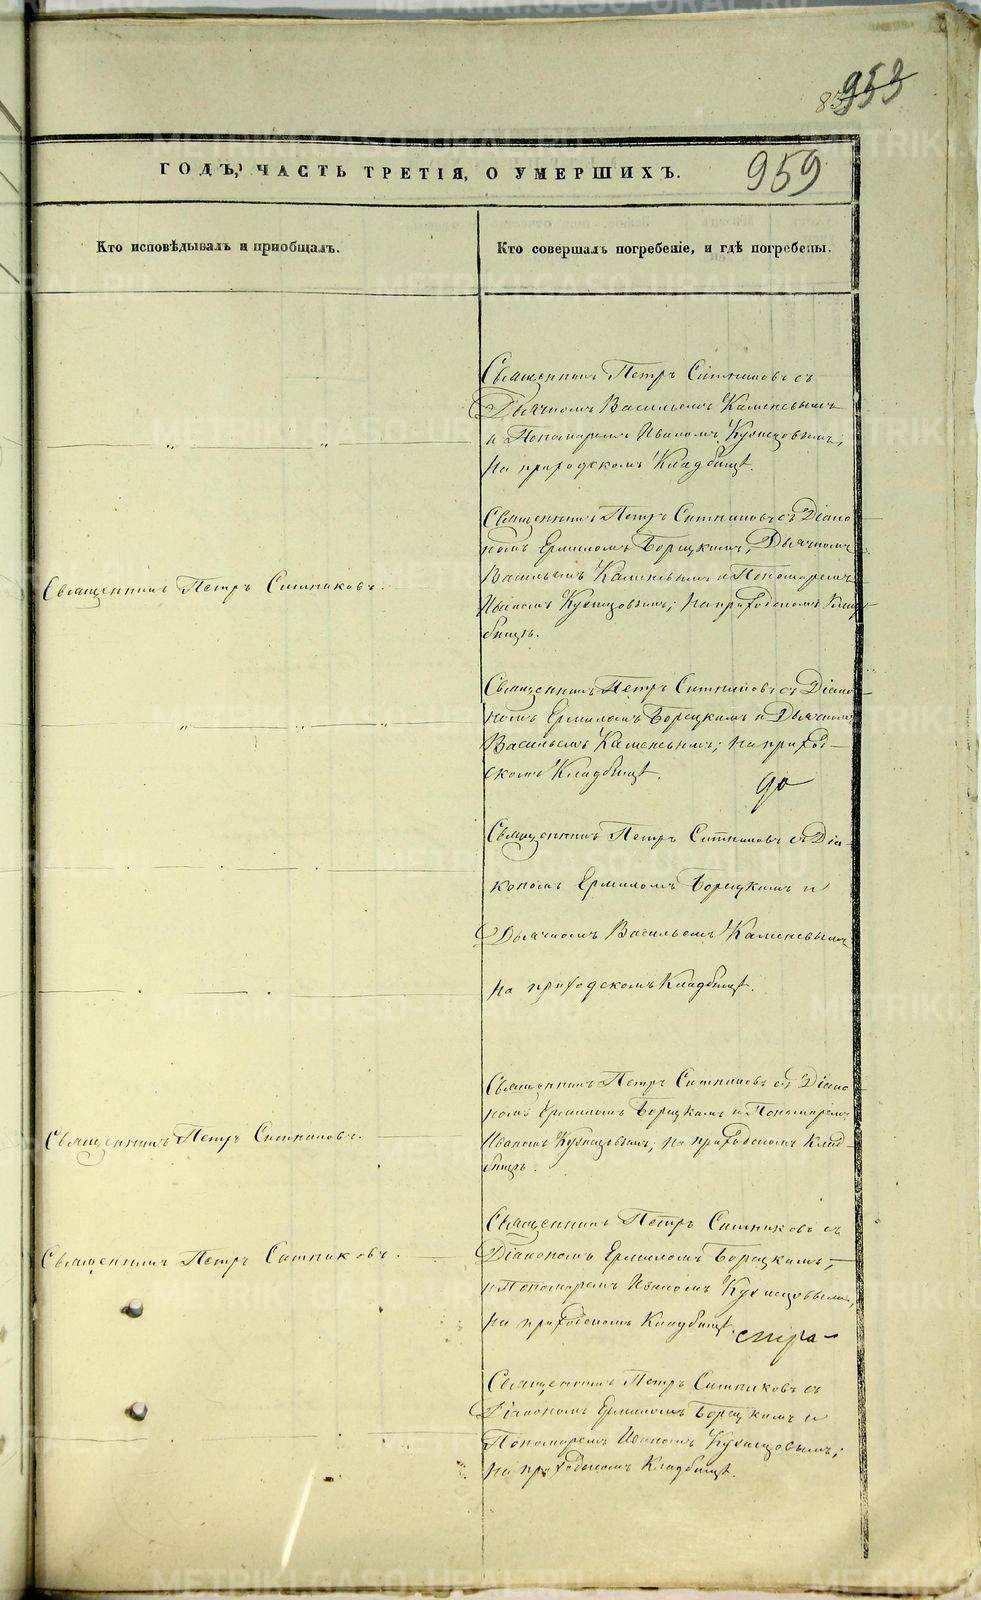 953
959
ГОДЪ, ЧАСТЬ ТРЕТІЯ, О УМЕРШИХЪ.
Кто исповѣдывалъ и пріобщалъ.
Кто совершалъ погребеніе, и гдѣ погребены.
Священникъ Петръ Ситниковъ съ
Дьячкомъ Васильемъ Каменевымъ
и Пономаремъ Иваномъ Кузнецовымъ;
на приходскомъ Кладбищѣ.
Священникъ Петръ Ситниковъ съ Діако-
номъ Ермиломъ Борецкимъ, Дьячкомъ
Васильемъ Каменевымъ и Пономаремъ
Иваномъ Кузнецовымъ; на приходскомъ Клад-
бищѣ.
Священникъ Петръ Ситниковъ.
Священникъ Петръ Ситниковъ съ Діако-
номъ Ермиломъ Борецкимъ и Дьячкомъ
Васильемъ Каменевымъ; на приход-
скомъ Кладбищѣ.
до
Священникъ Петръ Ситниковъ съ Діа-
кономъ Ермиломъ Борецкимъ и
Дьячкомъ Васильемъ Каменевымъ
на приходскомъ Кладбищѣ.
Священникъ Петръ Ситниковъ съ Діако-
номъ Ермиломъ Борецкимъ и Пономаремъ
Иваномъ Кузнецовымъ; на приходскомъ Клад-
бищѣ.
Священникъ Петръ Ситниковъ.
Священникъ Петръ Ситниковъ съ
Діакономъ Ермиломъ Борецкимъ,
и Пономаремъ Иваномъ Кузнецовымъ,
на приходскомъ Кладбищѣ.
Священникъ Петръ Ситниковъ.
стра-
Священникъ Петръ Ситниковъ съ
Діакономъ Ермиломъ Борецкимъ и
Пономаремъ Иваномъ Кузнецовымъ;
на приходскомъ Кладбищѣ.
METRIKI.GASO-URAL.RU